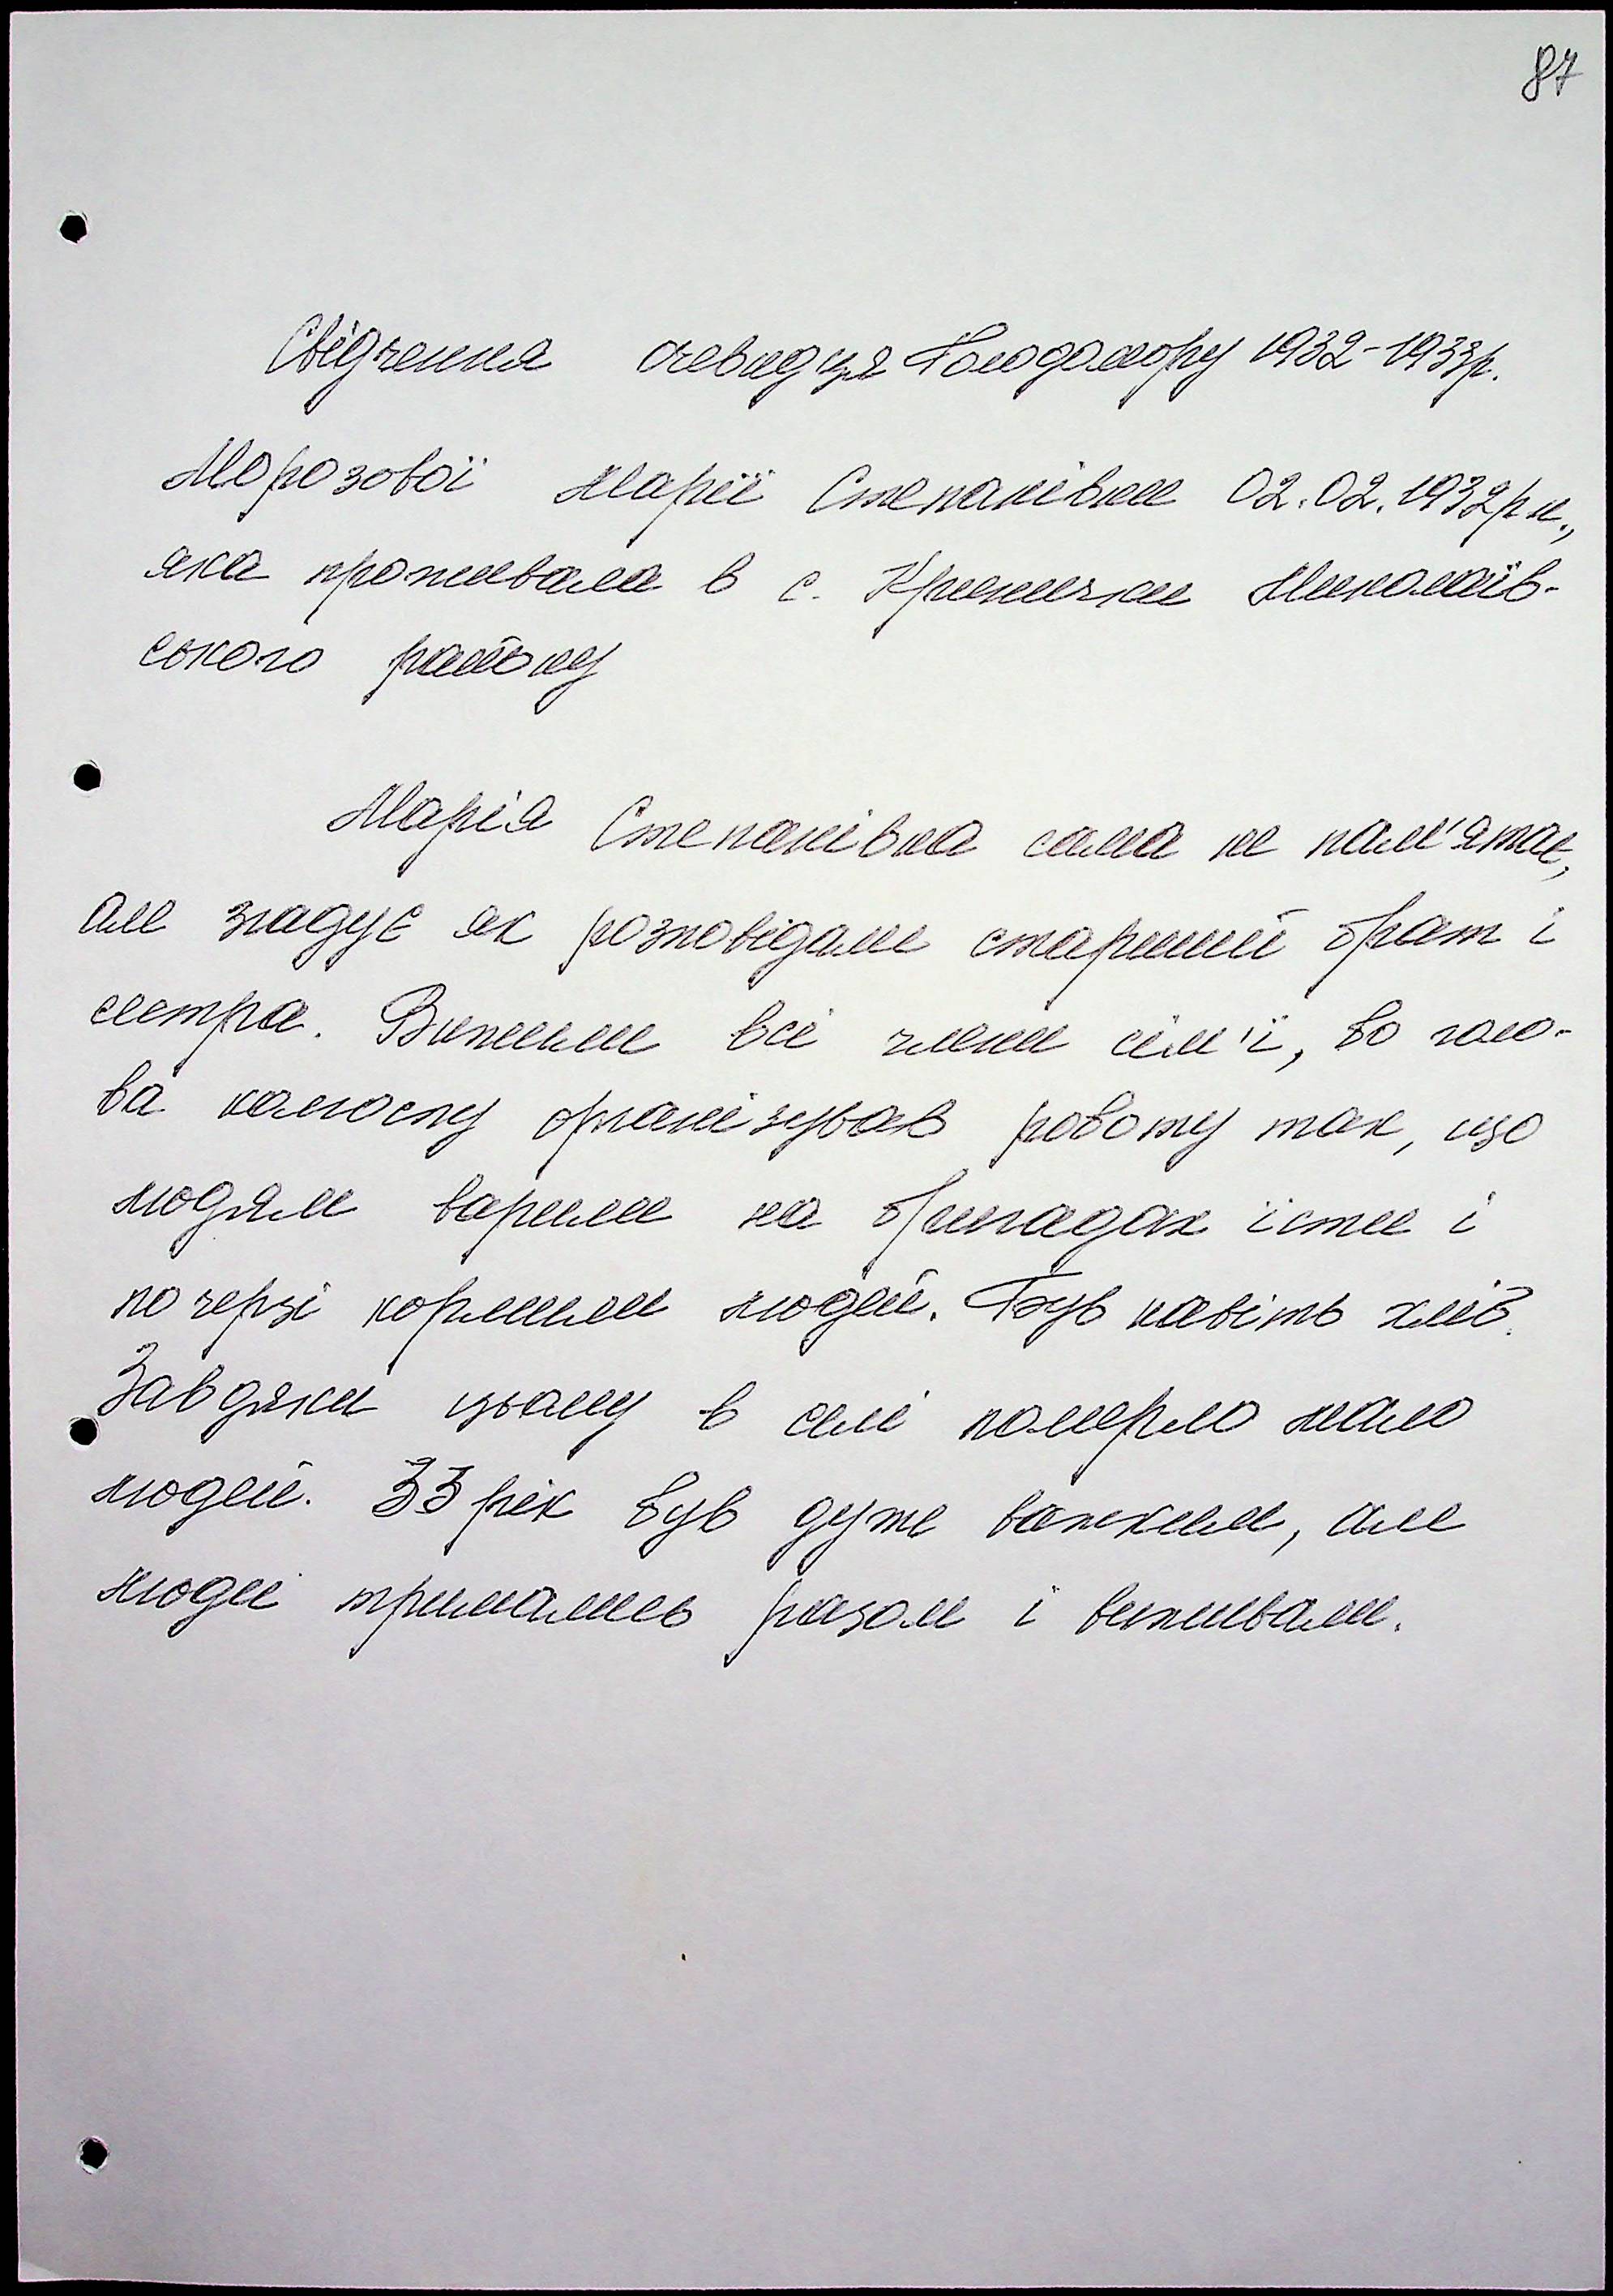 87
Свідчення очевидця Голодомору 1932-1933р.
Морозової Марії Степанівни 02.02.1932р н.,
яка проживала в с. Кринички Миколаїв-
ського району
Марія Степанівна сама не пам'ятає,
але згадує як розповідали старший брат і
сестра. Вижили всі члени сім'ї, бо голо-
ва колгоспу організував роботу так, що
людям варили на бригадах їсти і
по черзі кормили людей. Був навіть хліб.
Завдяки цьому в селі померло мало
людей. 33 рік був дуже важким, але
люди тримались разом і виживали.